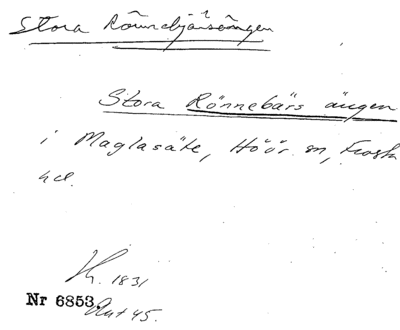 Stora Rönnebärsängen
Stora Rönnebärs ängen
i Maglasäte, Höör sn, Frosta
hd.
1831
Nr 6853